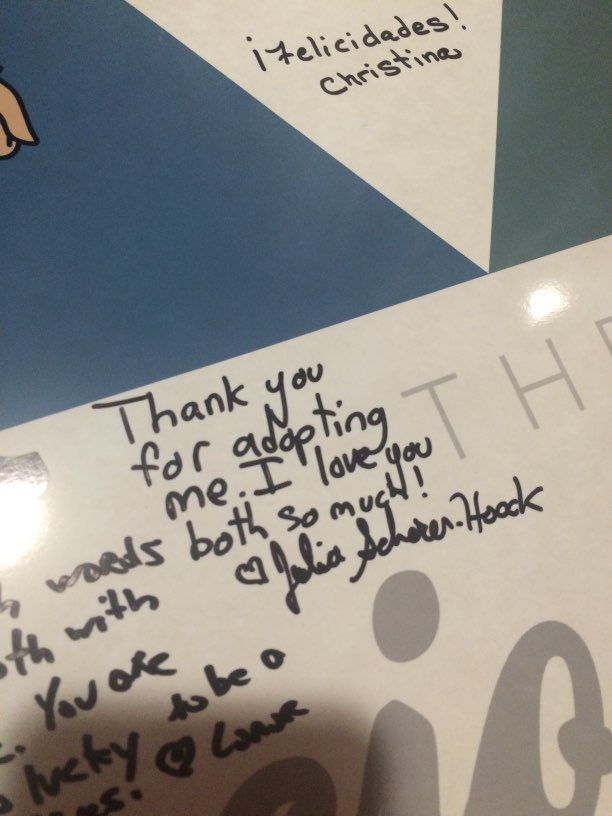 ¡Felicidades!
Christina
THE
Thank you
for adopting
me. I love you
both so much!
♡ Julia Scherer-Hoock
words
with
You are
to be a
lucky ♡
io